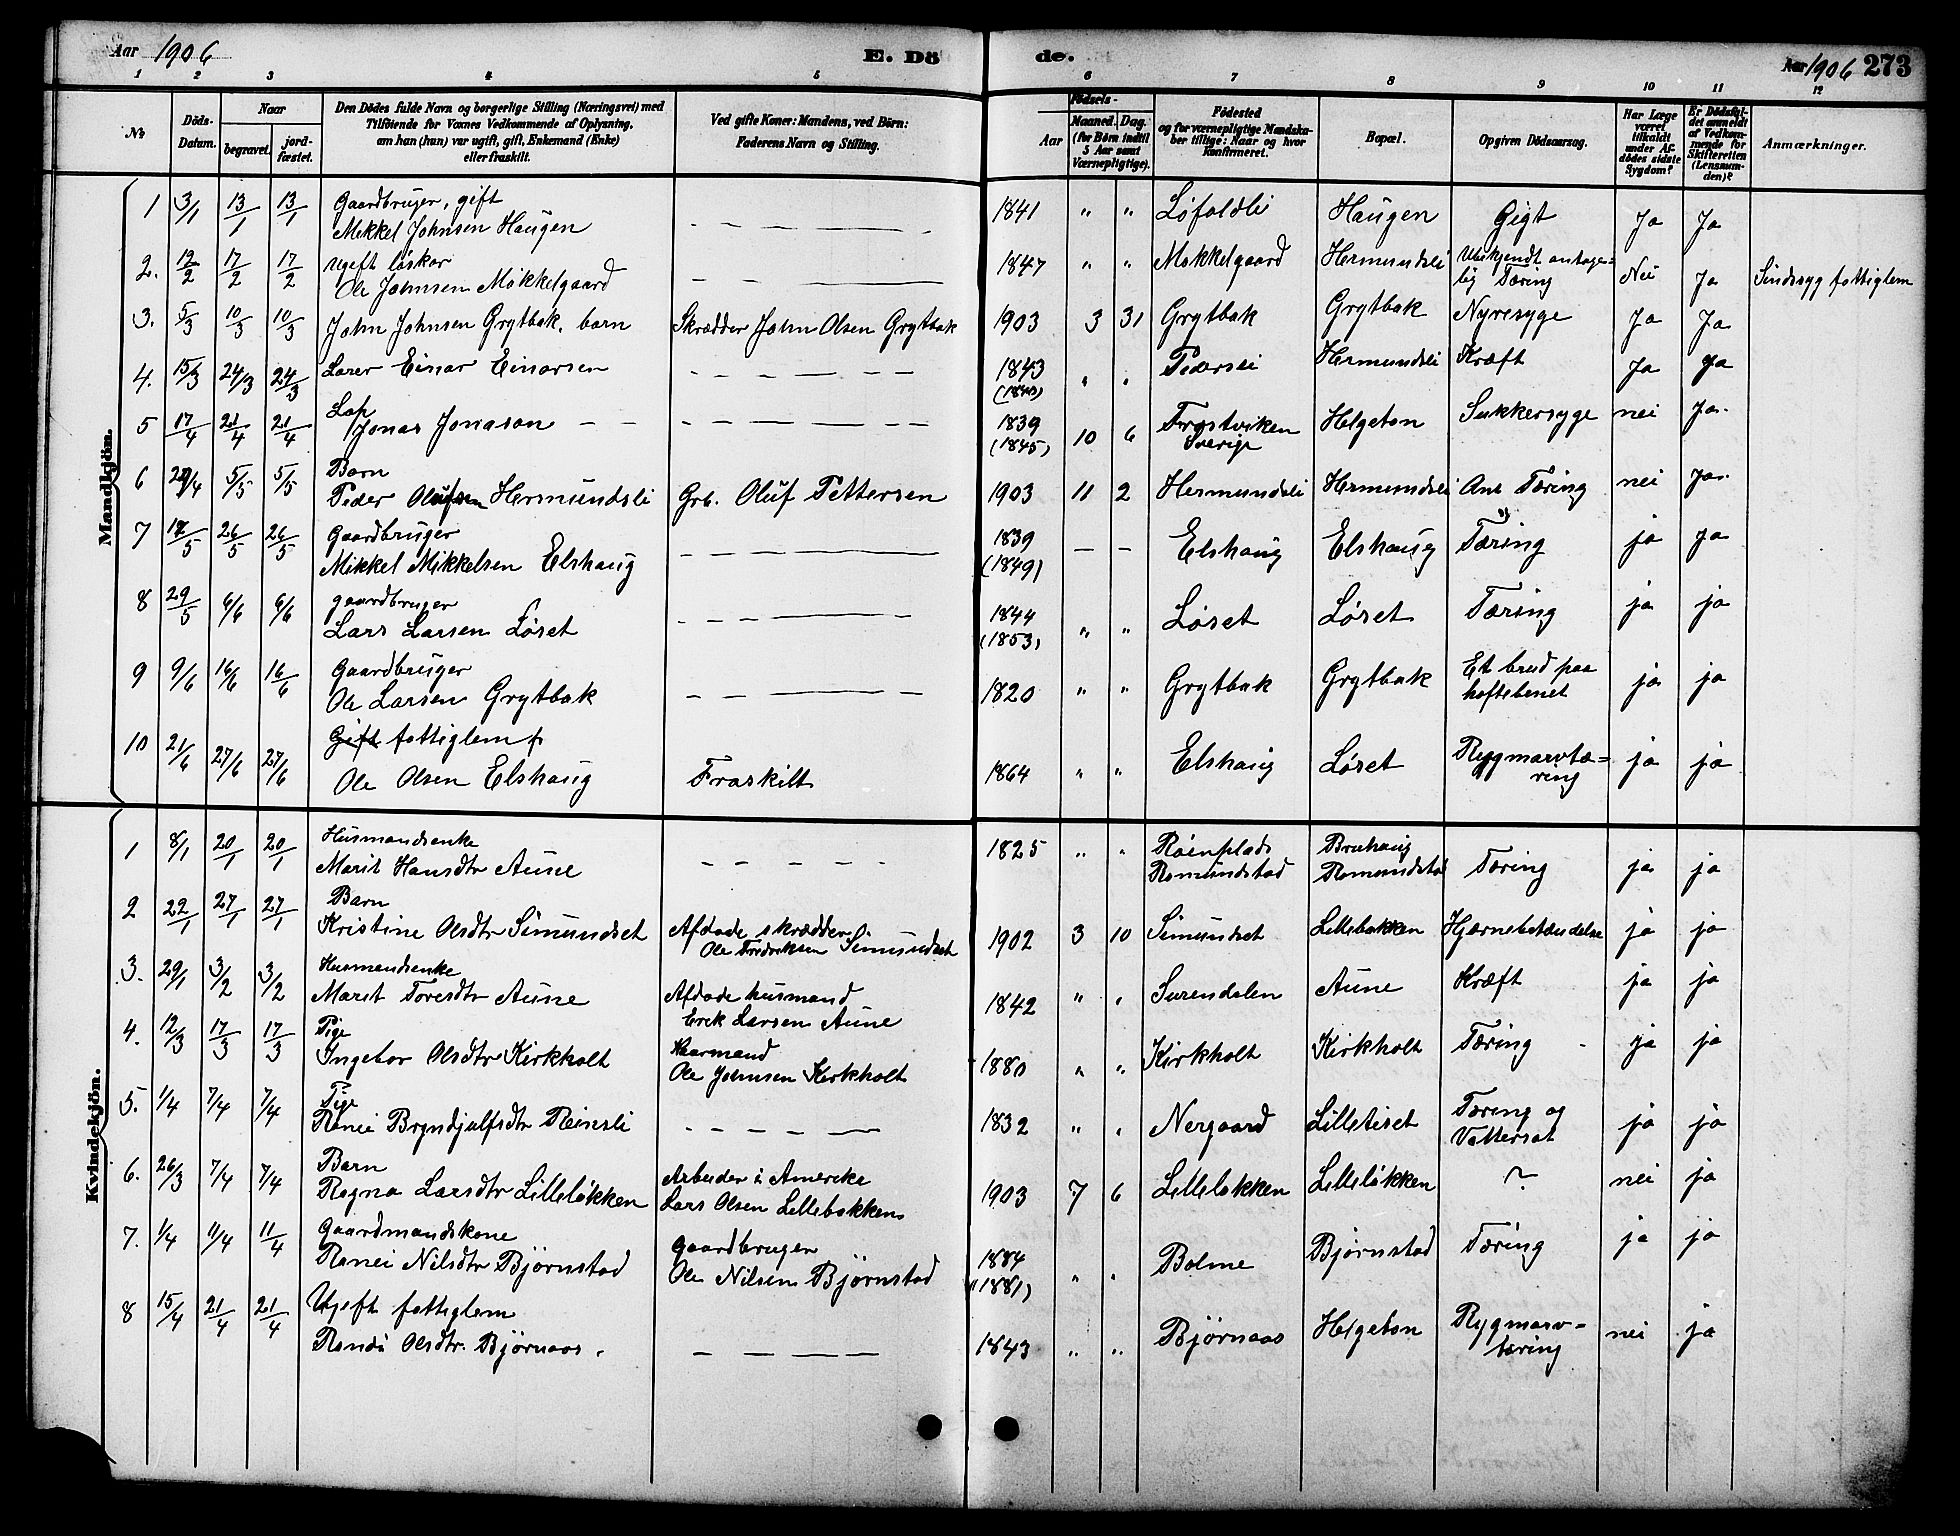 Aar 1906 E. Döde. Aar 1906 273
1 2 3 4 5 6 7 8 9 10 11 12
No
Döds-Datum.
Naar
begravet.
jordfæstet.
Den Dödes fulde Navn og borgerlige Stilling (Næringsvei) med
Tilföiende for Voxnes Vedkommende af Oplysning,
om han (hun) var ugift, gift, Enkemand (Enke)
eller fraskilt.
Ved gifte Koner: Mandens, ved Börn:
Faderens Navn og Stilling.
Födsels-
Aar
Maaned. Dag.
(for Börn indtil
5 Aar samt
Værnepligtige).
Födested
og for værnepligtige Mandska-
ber tillige: Naar og hvor
Konfirmeret.
Bopæl.
Opgiven Dödsaarsag.
Har Læge
været
tilkaldt
under Af-
dödes sidste
Sygdom?
Er Dödsfal-
det anmeldt
af Vedkom-
mende for
Skifteretten
(Lensman-
den)?
Anmærkninger.
Mandkjön.
1 3/1 13/1 13/1 Gaardbruger, gift
Mikkel Johnsen Haugen — — — 1841 " " Løfaldli Haugen Gigt Ja Ja
2. 12/2 17/2 17/2 ugift løskar
Ole Johnsen Møkkelgaard — — — 1847 " " Møkkelgaard Hermundsli Ubekjendt antage-
lig Tæring Nei Ja Sindssyg fattiglem
3. 5/3 10/3 10/3 John Johnsen Grytbak, barn Skrædder John Olsen Grytbak 1903 3 31 Grytbak Grytbak Nyresyge Ja Ja
4. 15/3 24/3 24/3 Lærer Einar Einarsen — — — 1843 " " Pedersli Hermundsli Kræft Ja Ja
5 17/4 21/4 21/4 Lap
Jonas Jonason — — — 1839
(1845) 10 6 Frostviken
Sverige Helgeton Sukkersyge nei Ja.
6 5/5 5/5 Barn
Peder Olufsen Hermundsli Grb. Oluf Pettersen 1903 11 2 Hermundsli Hermundsli Ant Tæring nei Ja.
7 26/5 26/5 Gaardbruger
Mikkel Mikkelsen Elshaug — — — 1839
(1849) — — Elshaug Elshaug Tæring ja ja
8 29/5 6/6 6/6 gaardbruger
Lars Larsen Løset — — — 1844
(1853) " " Løset Løset Tæring ja ja
9 9/6 16/6 16/6 Gaardbruger
Ole Larsen Grytbak — — — 1820 " " Grytbak Grytbak Et brud paa
hoftebenet ja ja
10 21/6 27/6 27/6 Gift fattiglem
Ole Olsen Elshaug Fraskilt 1864 " " Elshaug Løset Rygmarvtæ=
ring ja ja
Kvindekjön.
1 8/1 20/1 20/1 Husmandsenke
Marit Hansdtr Aune — — — 1825 " " Røenplads
Romundstad Bruhaug
Romundstad Tæring ja ja
2 22/1 27/1 27/1 Barn
Kristine Olsdtr Simundset Afdøde skrædder
Ole Fredriksen Simundset 1902 3 10 Simundset Lillebakken Hjærnebetændelse ja ja
3. 29/1 3/2 3/2 Husmandsenke
Marit Toresdtr Aune Afdøde husmand
Erik Larsen Aune 1842 " " Surendalen Aune Kræft ja ja
4. 12/3 17/3 17/3 Pige
Ingebor Olsdtr Kirkholt Kaarmand
Ole Johnsen Kirkholt 1880 " " Kirkholt Kirkholt Tæring ja ja
5. 1/4 7/4 7/4 Pige
Ranei Bryndjulfsdtr Rinsli — — — 1832 " " Nergaard Lilletiset Tæring og
Vattersot ja ja
6. 26/3 7/4 7/4 Barn
Ragna Larsdtr Lilleløkken Arbeider i Amerika
Lars Olsen Lillebakken 1903 7 6 Lilleløkken Lilleløkken ? nei ja
7. 1/4 11/4 11/4 Gaardmandskone
Ranei Nilsdtr Bjørnstad Gaardbruger
Ole Nilsen Bjørnstad 1884
(1881) " " Bolme Bjørnstad Tæring ja ja
8 15/4 21/4 21/4 Ugift fattiglem
Randi Olsdtr. Bjørnaas — — — 1843 " " Bjørnaas Helgeton Rygmarv-
tæring nei ja